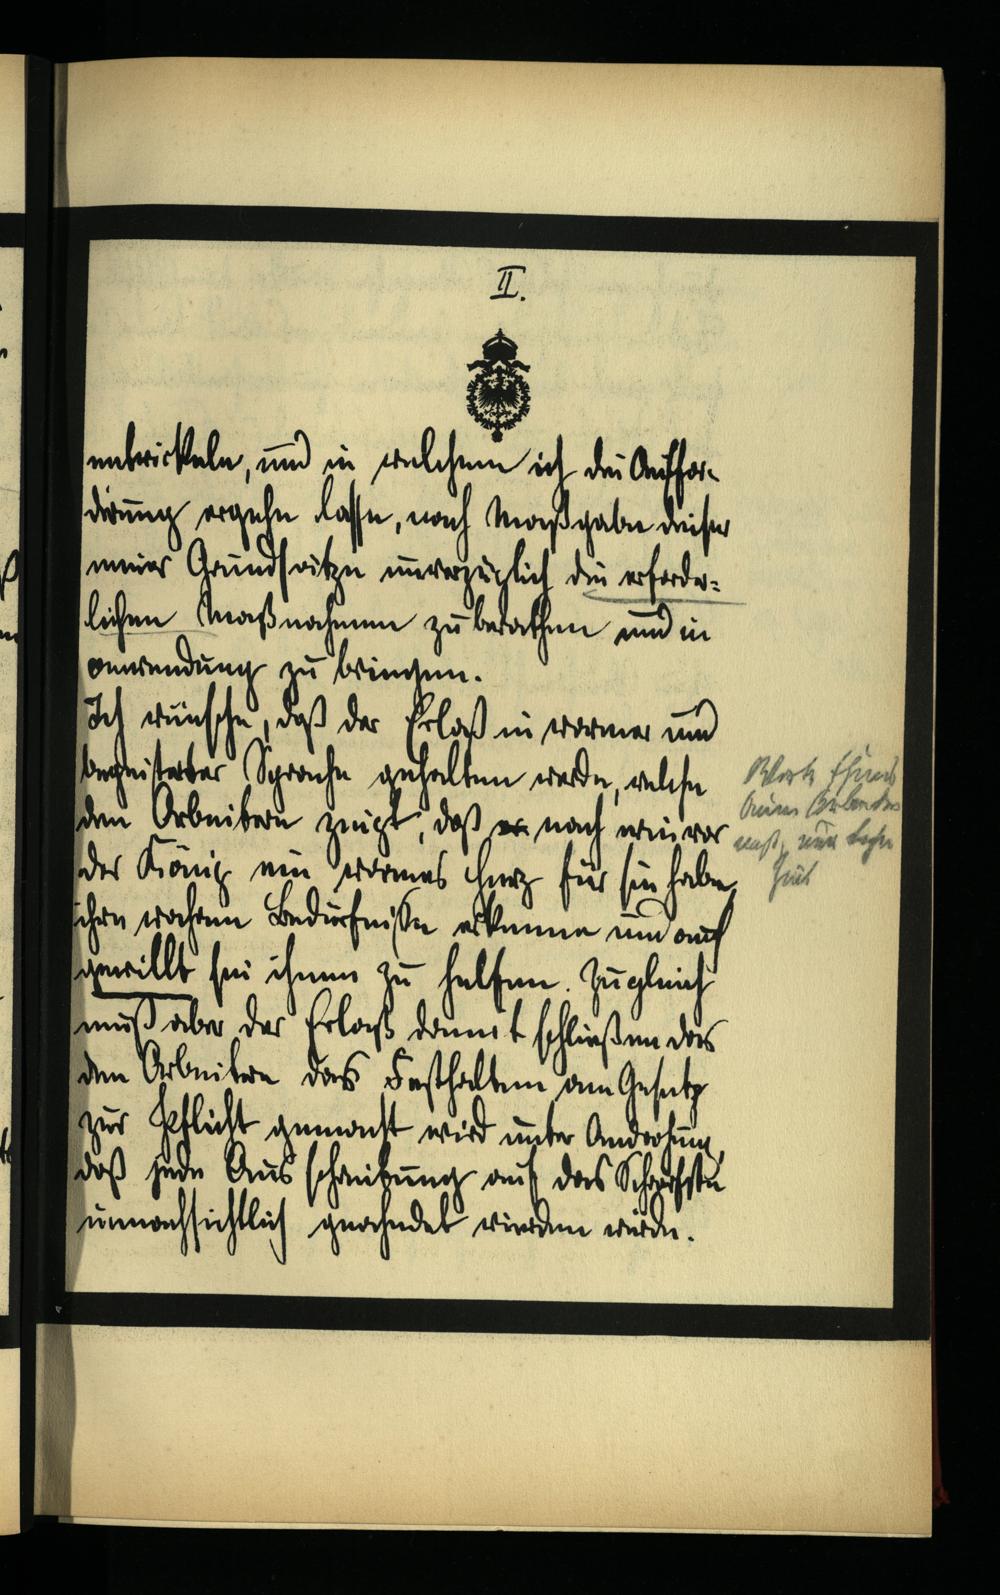 II.
entwickeln, und in welchem ich die Auffor-
derung ergehn lasse, nach Maßgabe dieser
meiner Grundsätze unverzüglich die erforder=
lichen Maßnahmen zu berathen und in
anwendung zu bringen.
Ich wünsche, daß der Erlaß in warmer und
begeisterter Sprache gehalten werde, welche
den Arbeitern zeigt, daß nach wie vor
der König ein warmes Herz für sie habe,
ihre wahren Bedürfnisse erkenne und auch
gewillt sei ihnen zu helfen. Zugleich
muß aber der Erlaß damit schließen das
den Arbeitern das Festhalten am Gesetz
zur Pflicht gemacht wird unter Androhung,
daß jede Ausschreitung auf das Schärfste
unnachsichtlich geahndet werden würde.